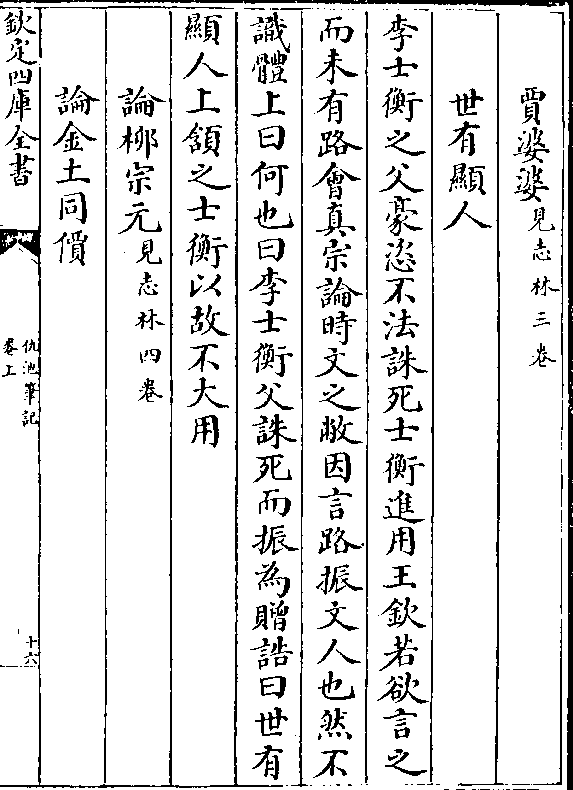 賈婆婆見志林三卷
世有顯人
李士衡之父豪恣不法誅死士衡進用王欽若欲言之
而未有路會真宗論時文之敝因言路振文人也然不
識體上曰何也曰李士衡父誅死而振為贈誥曰世有
顯人上頷之士衡以故不大用
論柳宗元見志林四卷
論金土同價
欽定四庫全書
仇池筆記
卷上
十六